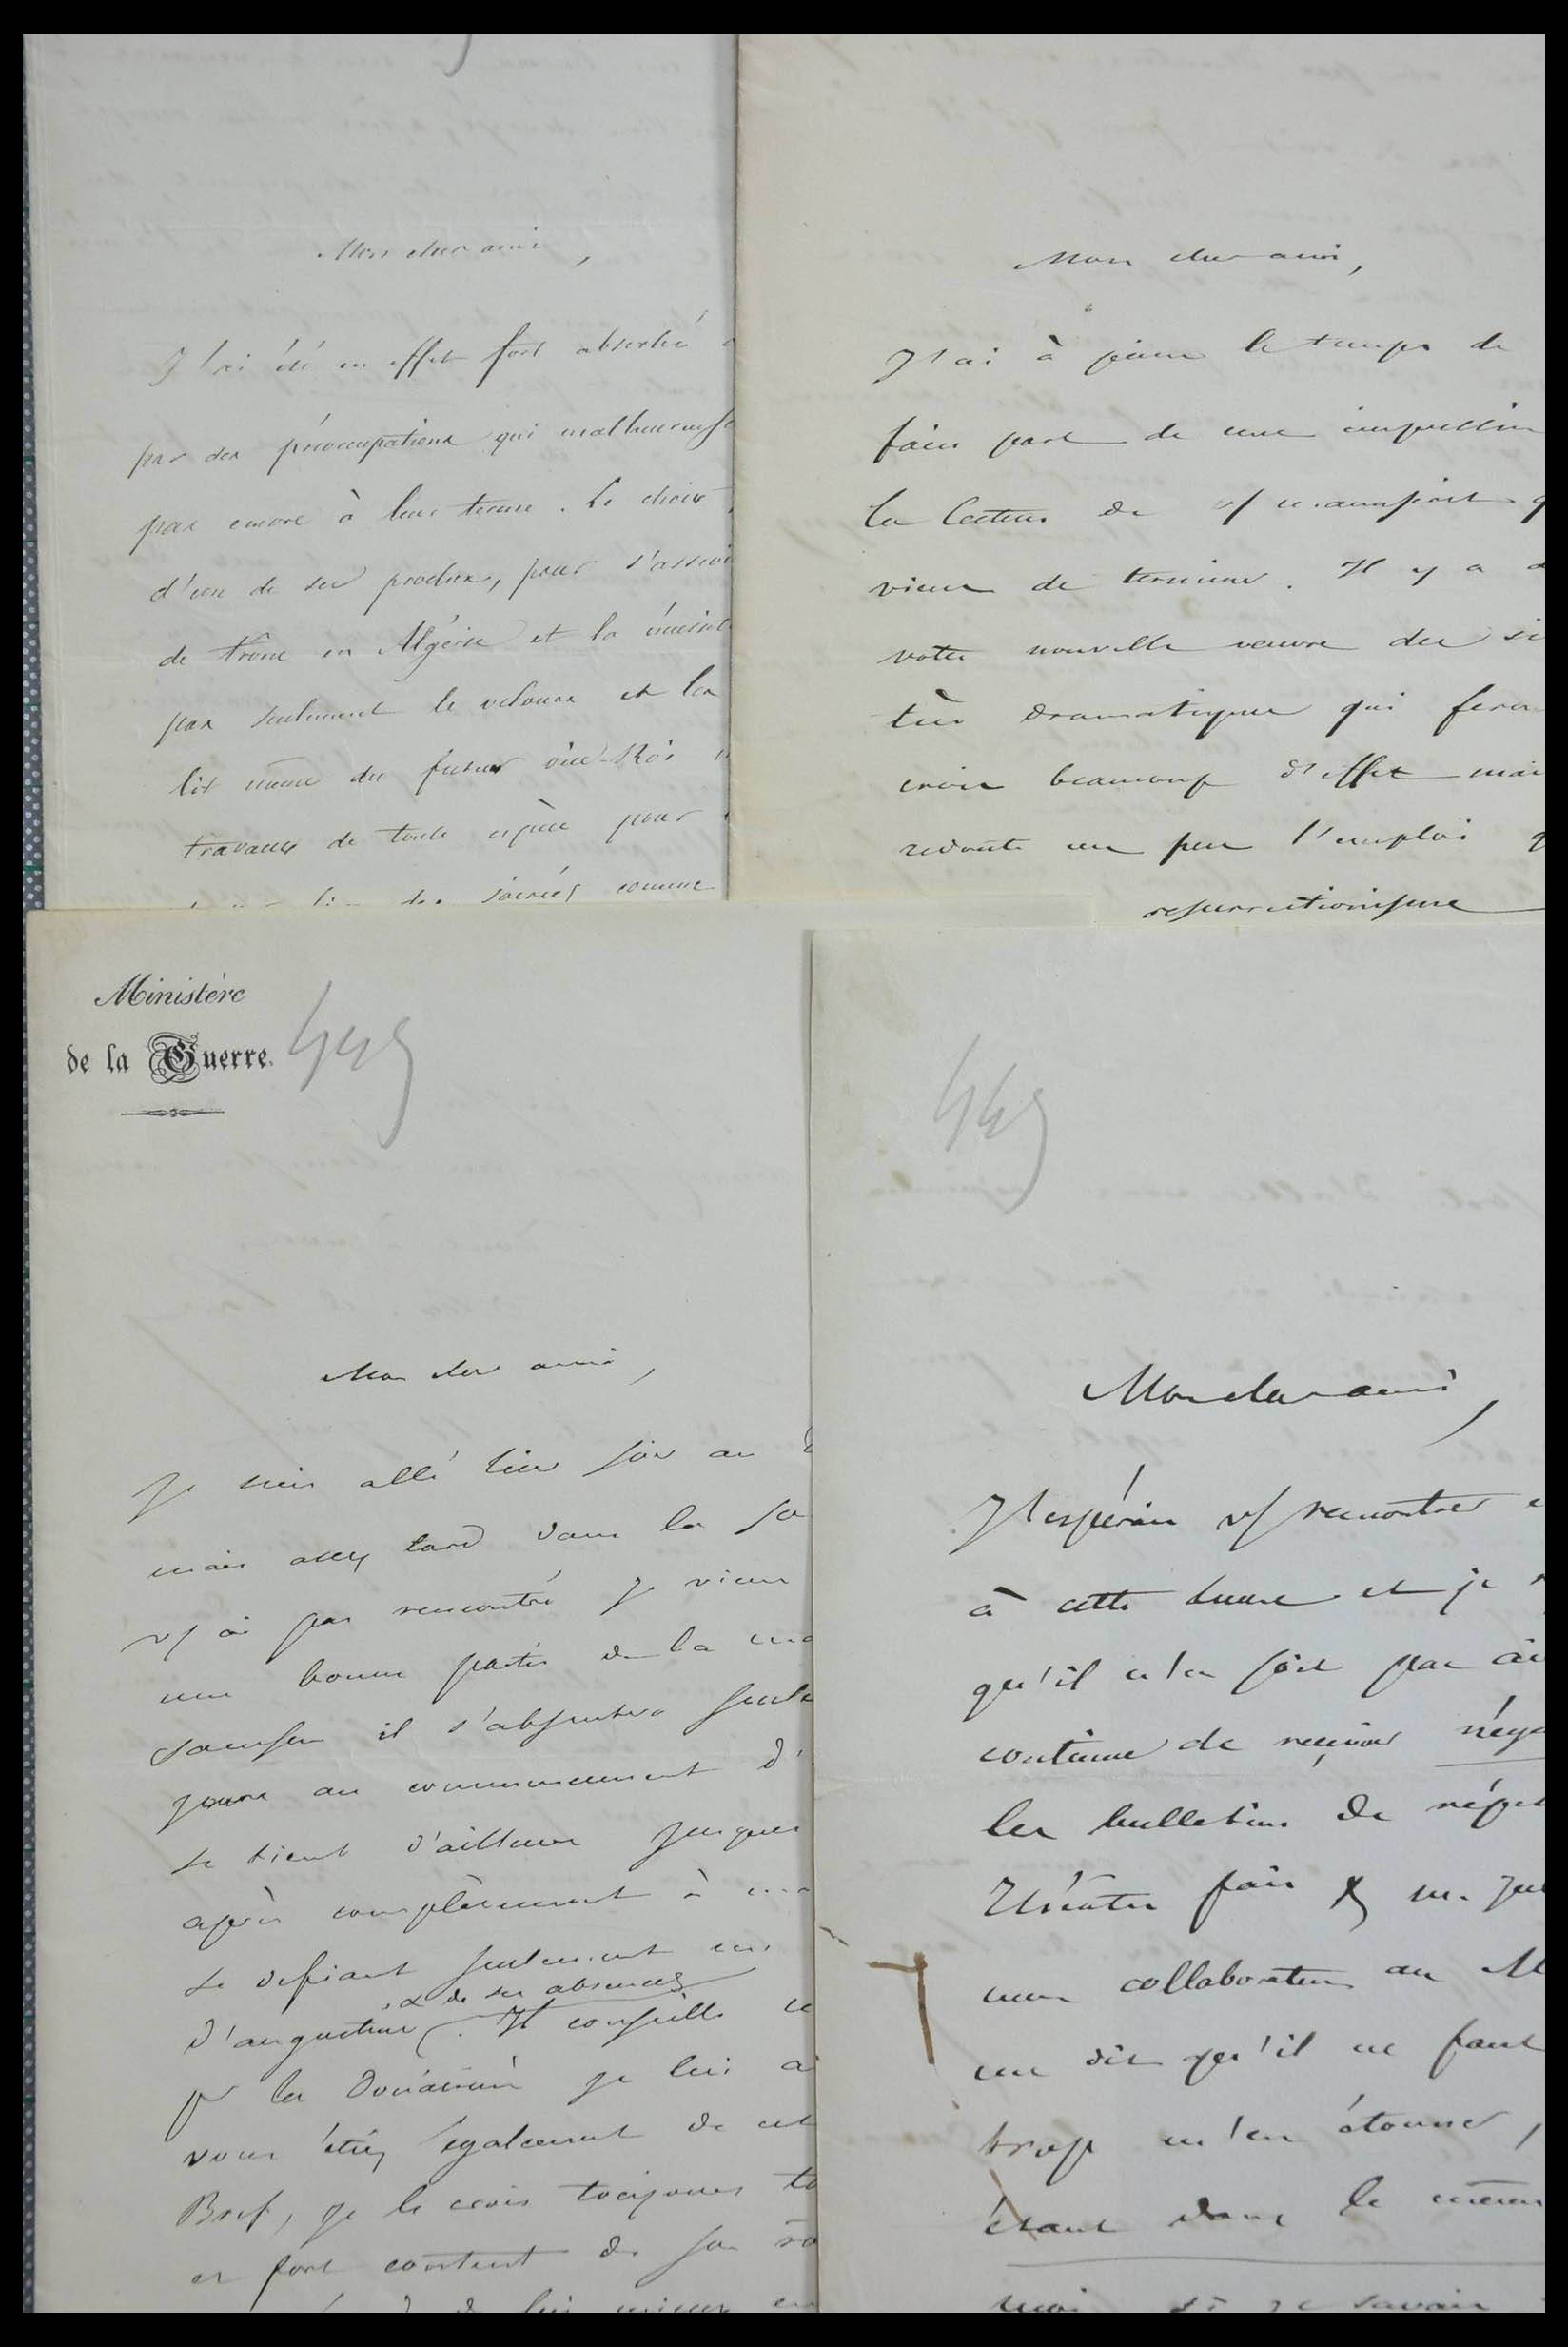 Mon cher ami,
J'ai été en effet fort absorbé
par des préoccupations qui malheureuse
pas encore à leur terme. Le choix
d'un de ses proches, pour s'asseoir
de trône en Algérie et la
pas seulement le velours et les
lit même du futur vice-Roi
travaux de toute espèce pour
des soirées comme
Mon cher ami,
J'ai à peine le temps de
faire part de une impression
la lecture de vs manuscrit
viens de terminer. Il y a
votre nouvelle oeuvre des si
très dramatiques qui feron
crois beaucoup d'effet mai
redoute un peu l'emploi q
resurrectionisme
Ministère
de la Guerre.
449
Mon cher ami,
Je suis allé hier soir au
mais assez tard dans la so
vs ai pas rencontré je viens
une bonne partie de la
il s'absentera seule
jours au commencement d'
se tient d'ailleurs jusques
après complètement à
se défiant seulement
, & de ses absences
d'augustine . Il conseille
pr les je lui a
vous étiez également de cet
Bref, je le crois toujours
et fort content de son
449
Mon cher ami,
J'espérais vs rencontrer
à cette heure et je
qu'il n'en soit pas ai
continue de recevoir
les bulletins de répét
Théâtre fais
collaborateur au M
me dit qu'il ne faut
trop m'en étonner,
étant dans le même
mais si je savais